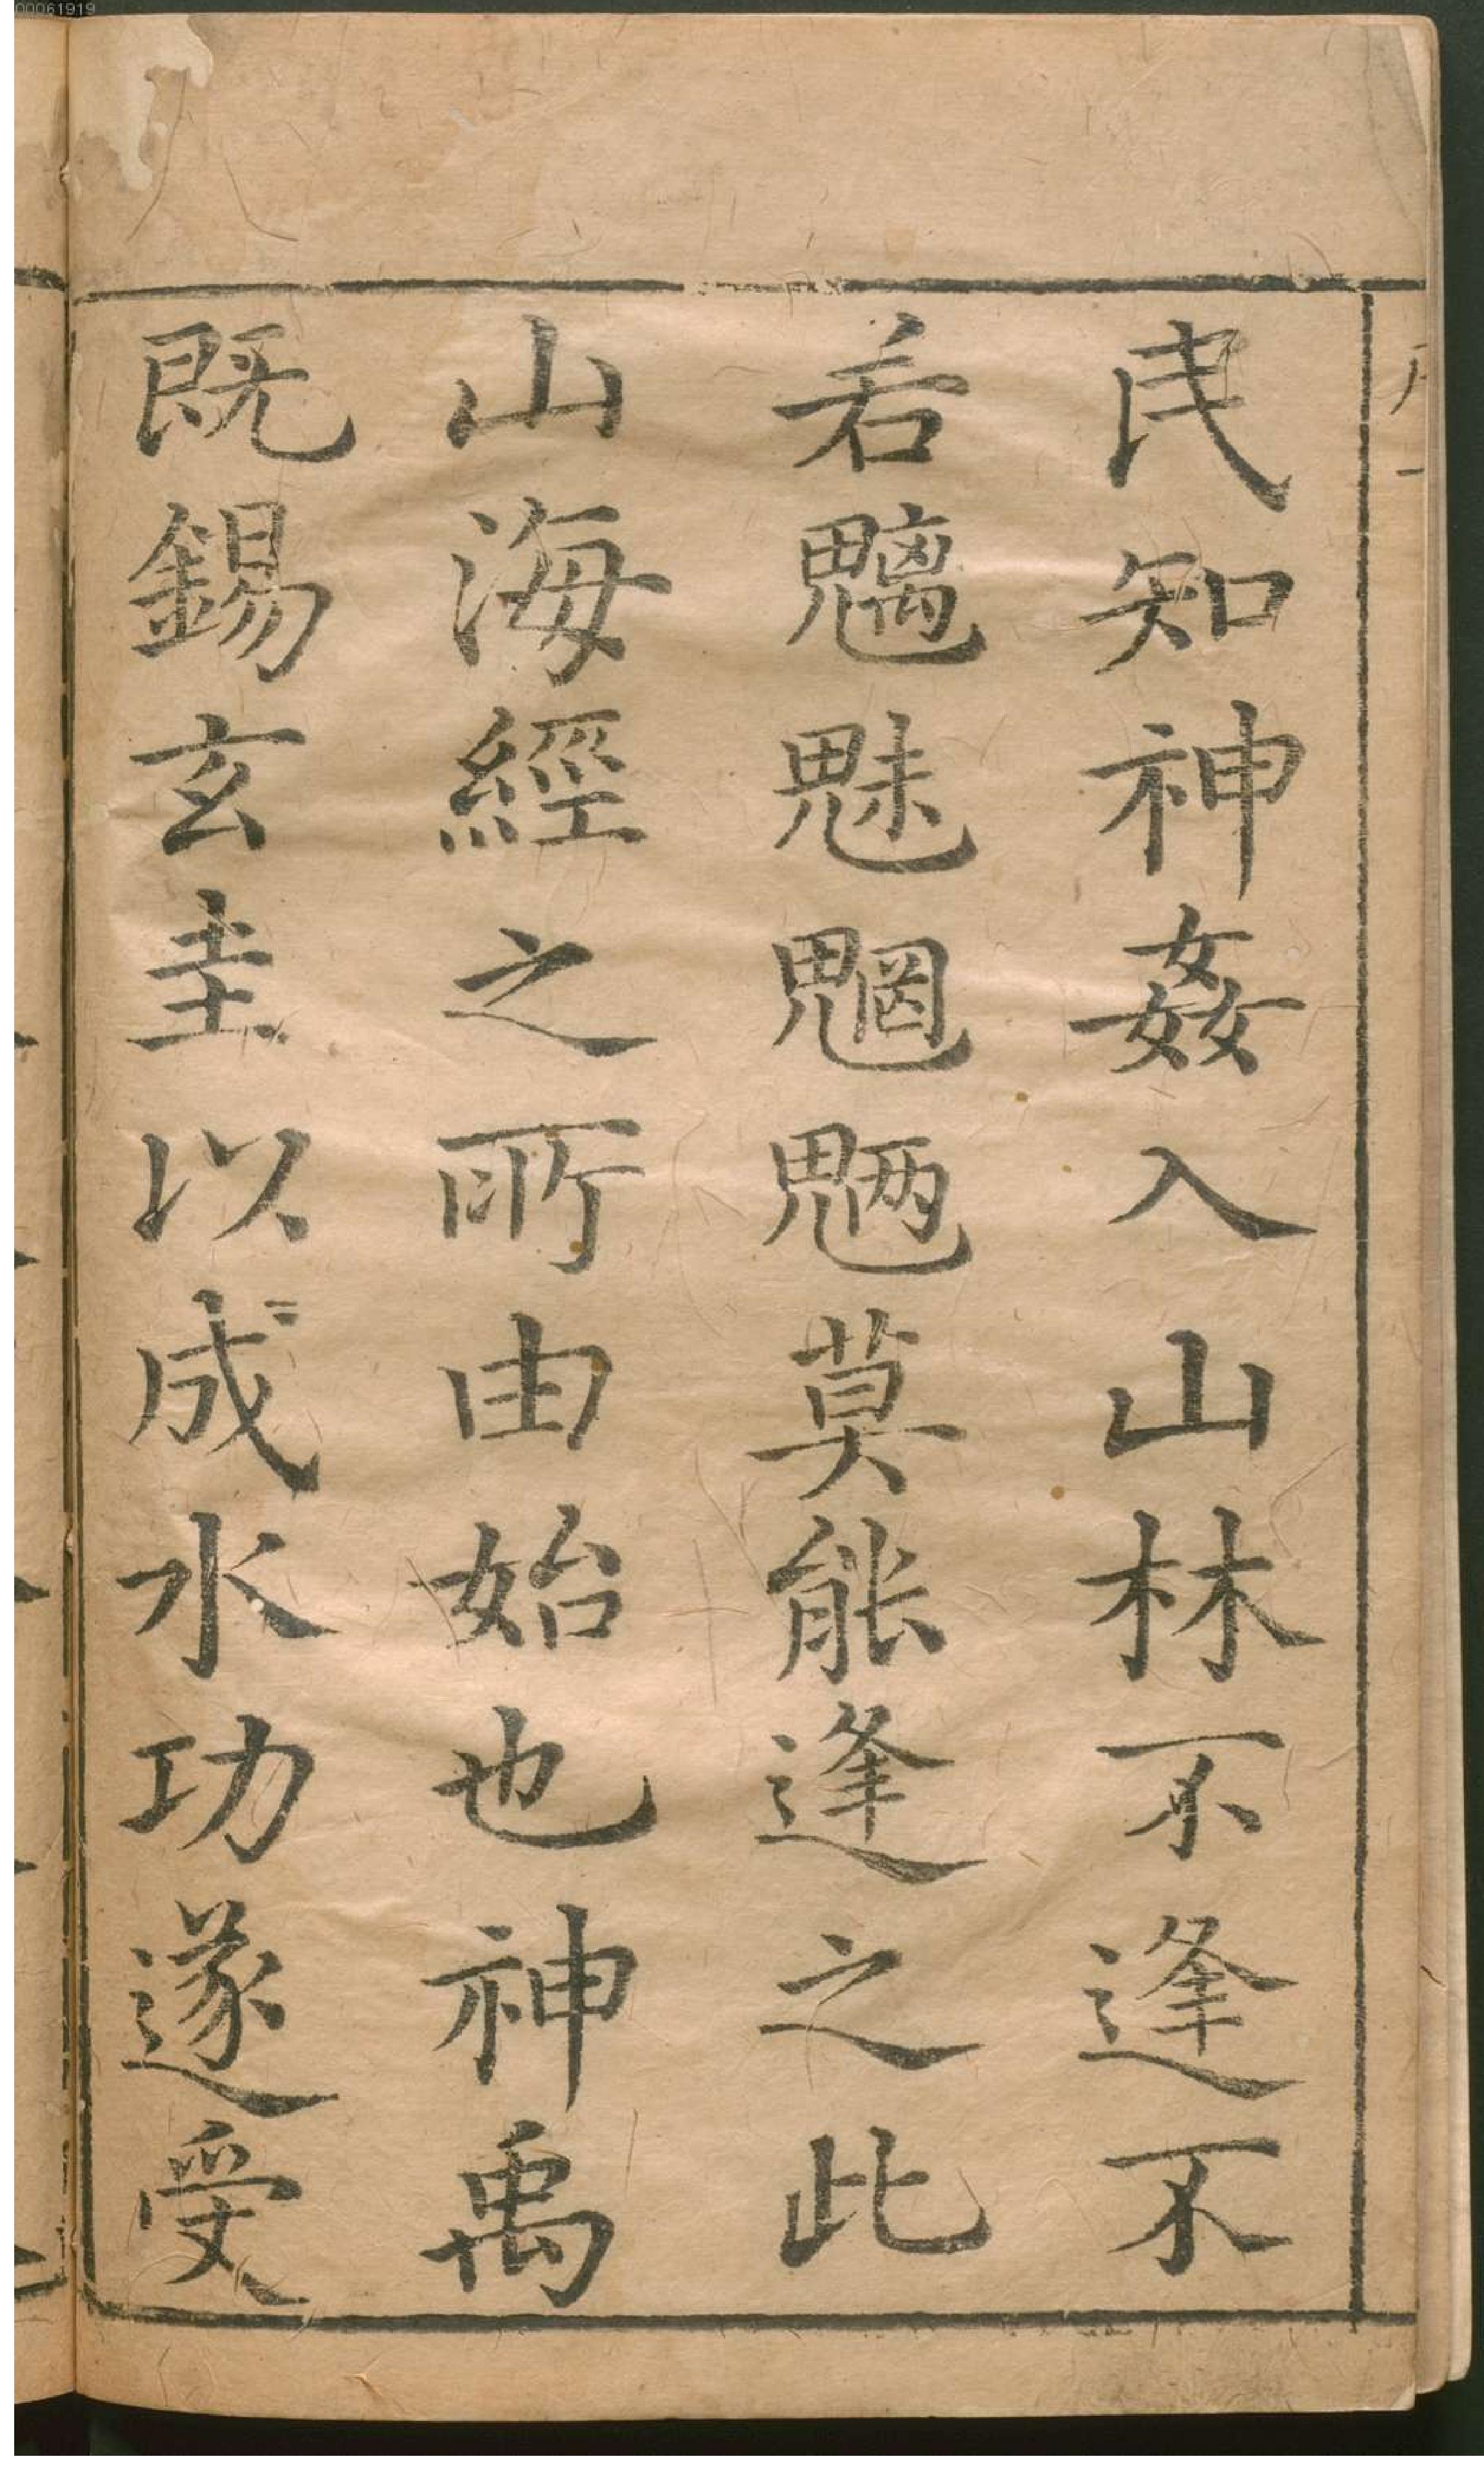 民知神姦入山林不逢不
若魑魅魍魎莫能逢之此
山海經之所由始也神禹
既錫玄圭以成水功遂受
00061919